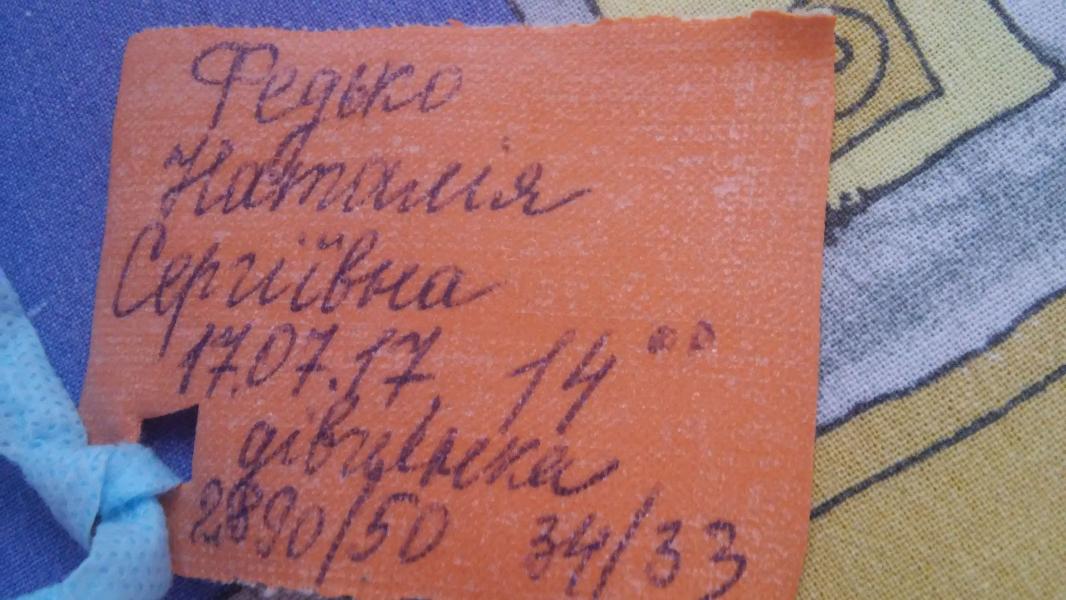 Федько
Наталія
Сергіївна
17.07.17 14⁰⁰
дівчинка
2890/50 34/33